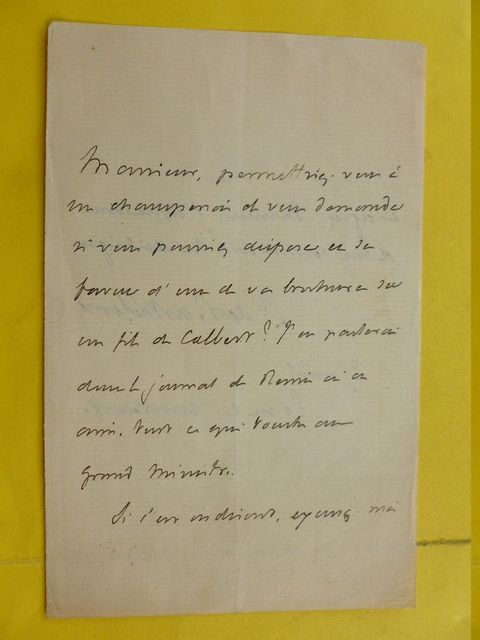 Monsieur, permettriez vous à
un champenois de vous demander
si vous pouviez disposer en sa
faveur d'une de vos brochures sur
un fils de Colbert? J'en parlerai
dans le journal de Reims où on
aime tout ce qui touche au
grand ministre.
Si c'est indiscret, excusez moi